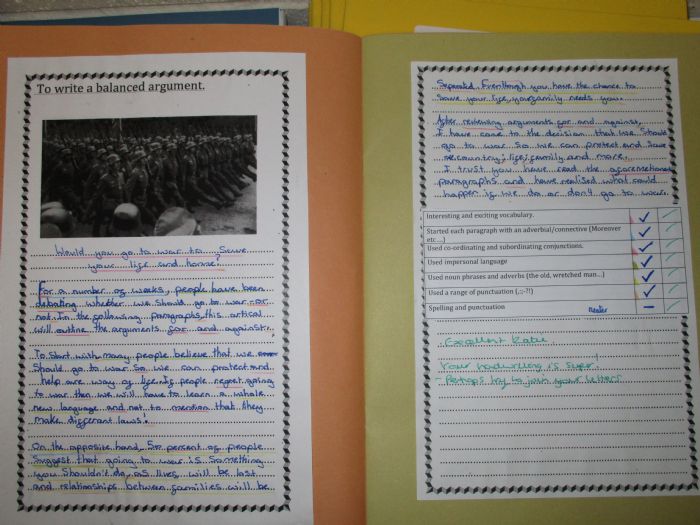 To write a balanced argument.
Would you go to war to Save
your life and home?
For a number of weeks, people have been
debating whether we should go to war or
not. In the following paragraphs, this artical
will outline the arguments for and against.
To start with many people believe that we
should go to war so we can protect and
help are way of life. If people regret going
to war then we will have to learn a whole
new language and not to mention that they
make different laws!
On the opposite hand, 50 percent of people
suggest that going to war is something
you shouldn't do, as lives will be lost
and relationships between families will be
Separated. Eventhough you have the chance to
save your life, your family needs you.
After reviewing arguments for and against,
I have come to the decision that we should
go to war so we can protect and save
are country, life, family and more.
I trust you have read the aforemetioned
paragraphs and have realised what could
happen if we do or don't go to war.
Interesting and exciting vocabulary.
Started each paragraph with an adverbial/connective (Moreover
etc...)
Used co-ordinating and subordinating conjunctions.
Used impersonal language
Used noun phrases and adverbs (the old, wretched man...)
Used a range of punctuation (,;:-?!)
Spelling and punctuation neater
Excellent Katie
Your handwriting is super!
- Perhaps try to join your letters